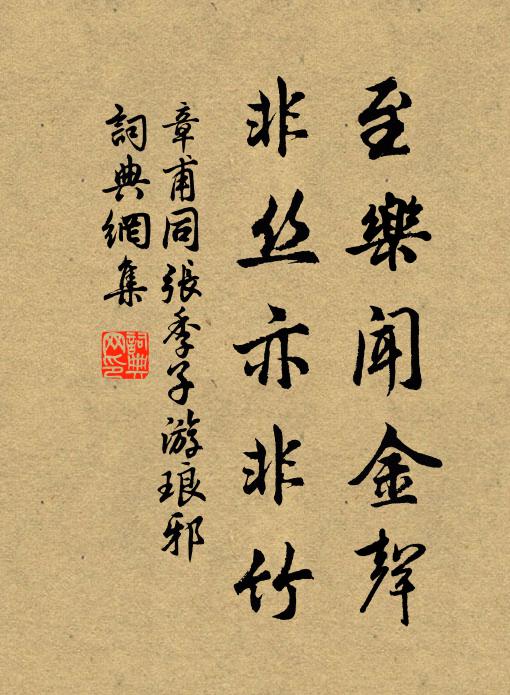 至樂闻金聲
非丝亦非竹
章甫同張季子游琅邪
詞典網集
詞典网印